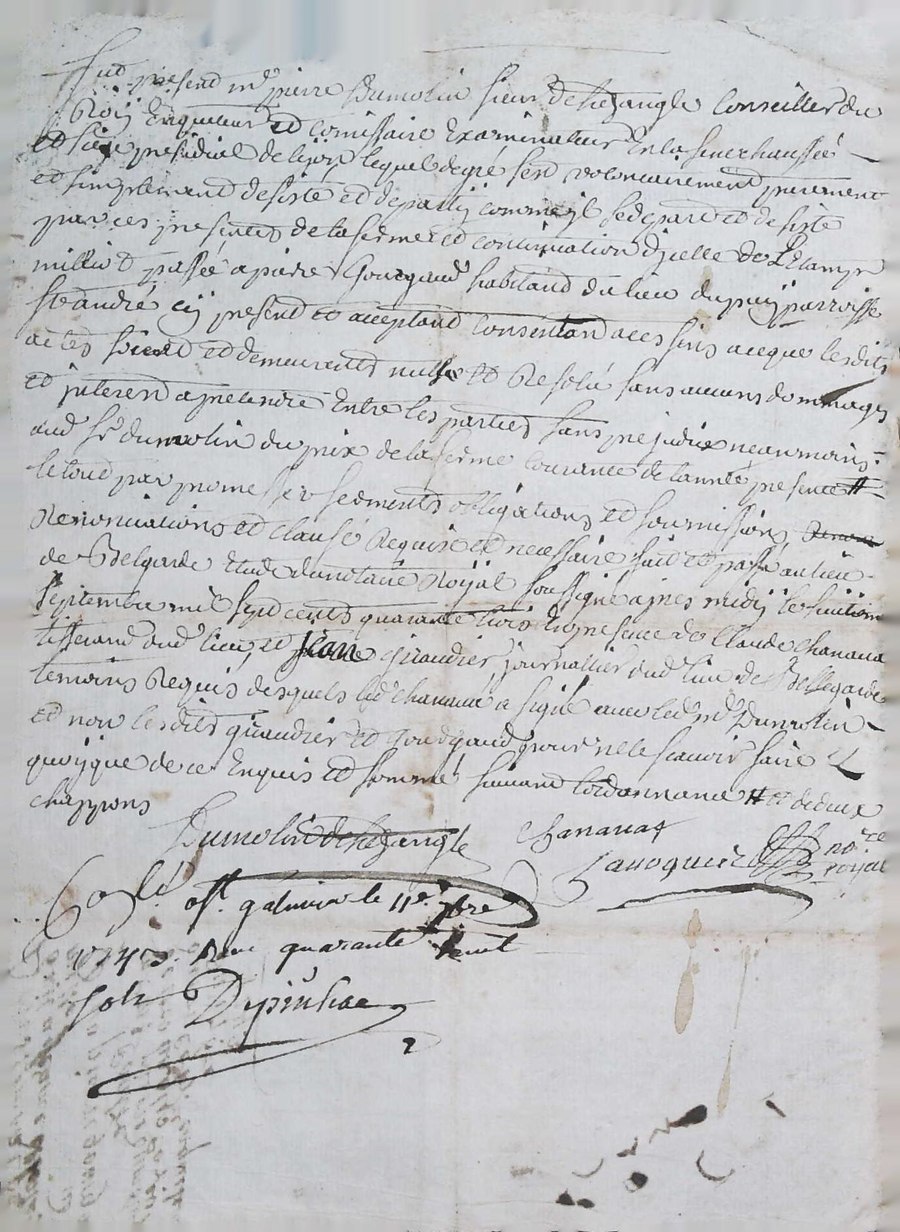 Fut present mr pierre Dumolin sieur de conseiller du
Roy Enqueteur et comissaire Examinateur En la senechaussée
et siege presidial de lyon lequel de gré sest volontairement purement
et simplement desisté et departy comme jl se depart et desiste
par ces presentes de la ferme et continuation d'jcelle de
passée a pierre Gourgaud habitand du lieu du puy parroisse
St andré cy present et acceptand consentand a ces fins a ce que lesdits
actes soient et demeurent nulls et Resolu sans aucuns dommages
et jnterest a pretendre Entre les parties sans prejudice neanmoins
aud sr dumolin du prix de la ferme courante de l'année presente #
le tout par promesses serments obligations et soumissions
Renonciations et clause Requise et necessaire fait et passé au lieu
de Belgarde Etude du notaire Royal soussigné apres midy le
septembre mil sept cents quarante trois En presence de Claude Chanava
tisserand dud lieu, et Jean giraudier journallier dud lieu de Bellegarde
temoins Requis desquels led chanava a signé avec led mr Dumolin
et non lesdits giraudier et Gourgaud pour ne le scavoir faire
quoyque de ce Enquis et sommé suivant l'ordonnance # et de deux
chappons
Dumolin chanavat no.re
royal
Conlé a St galmier le 11e 7bre
1743. Reçu quarante huit
sols